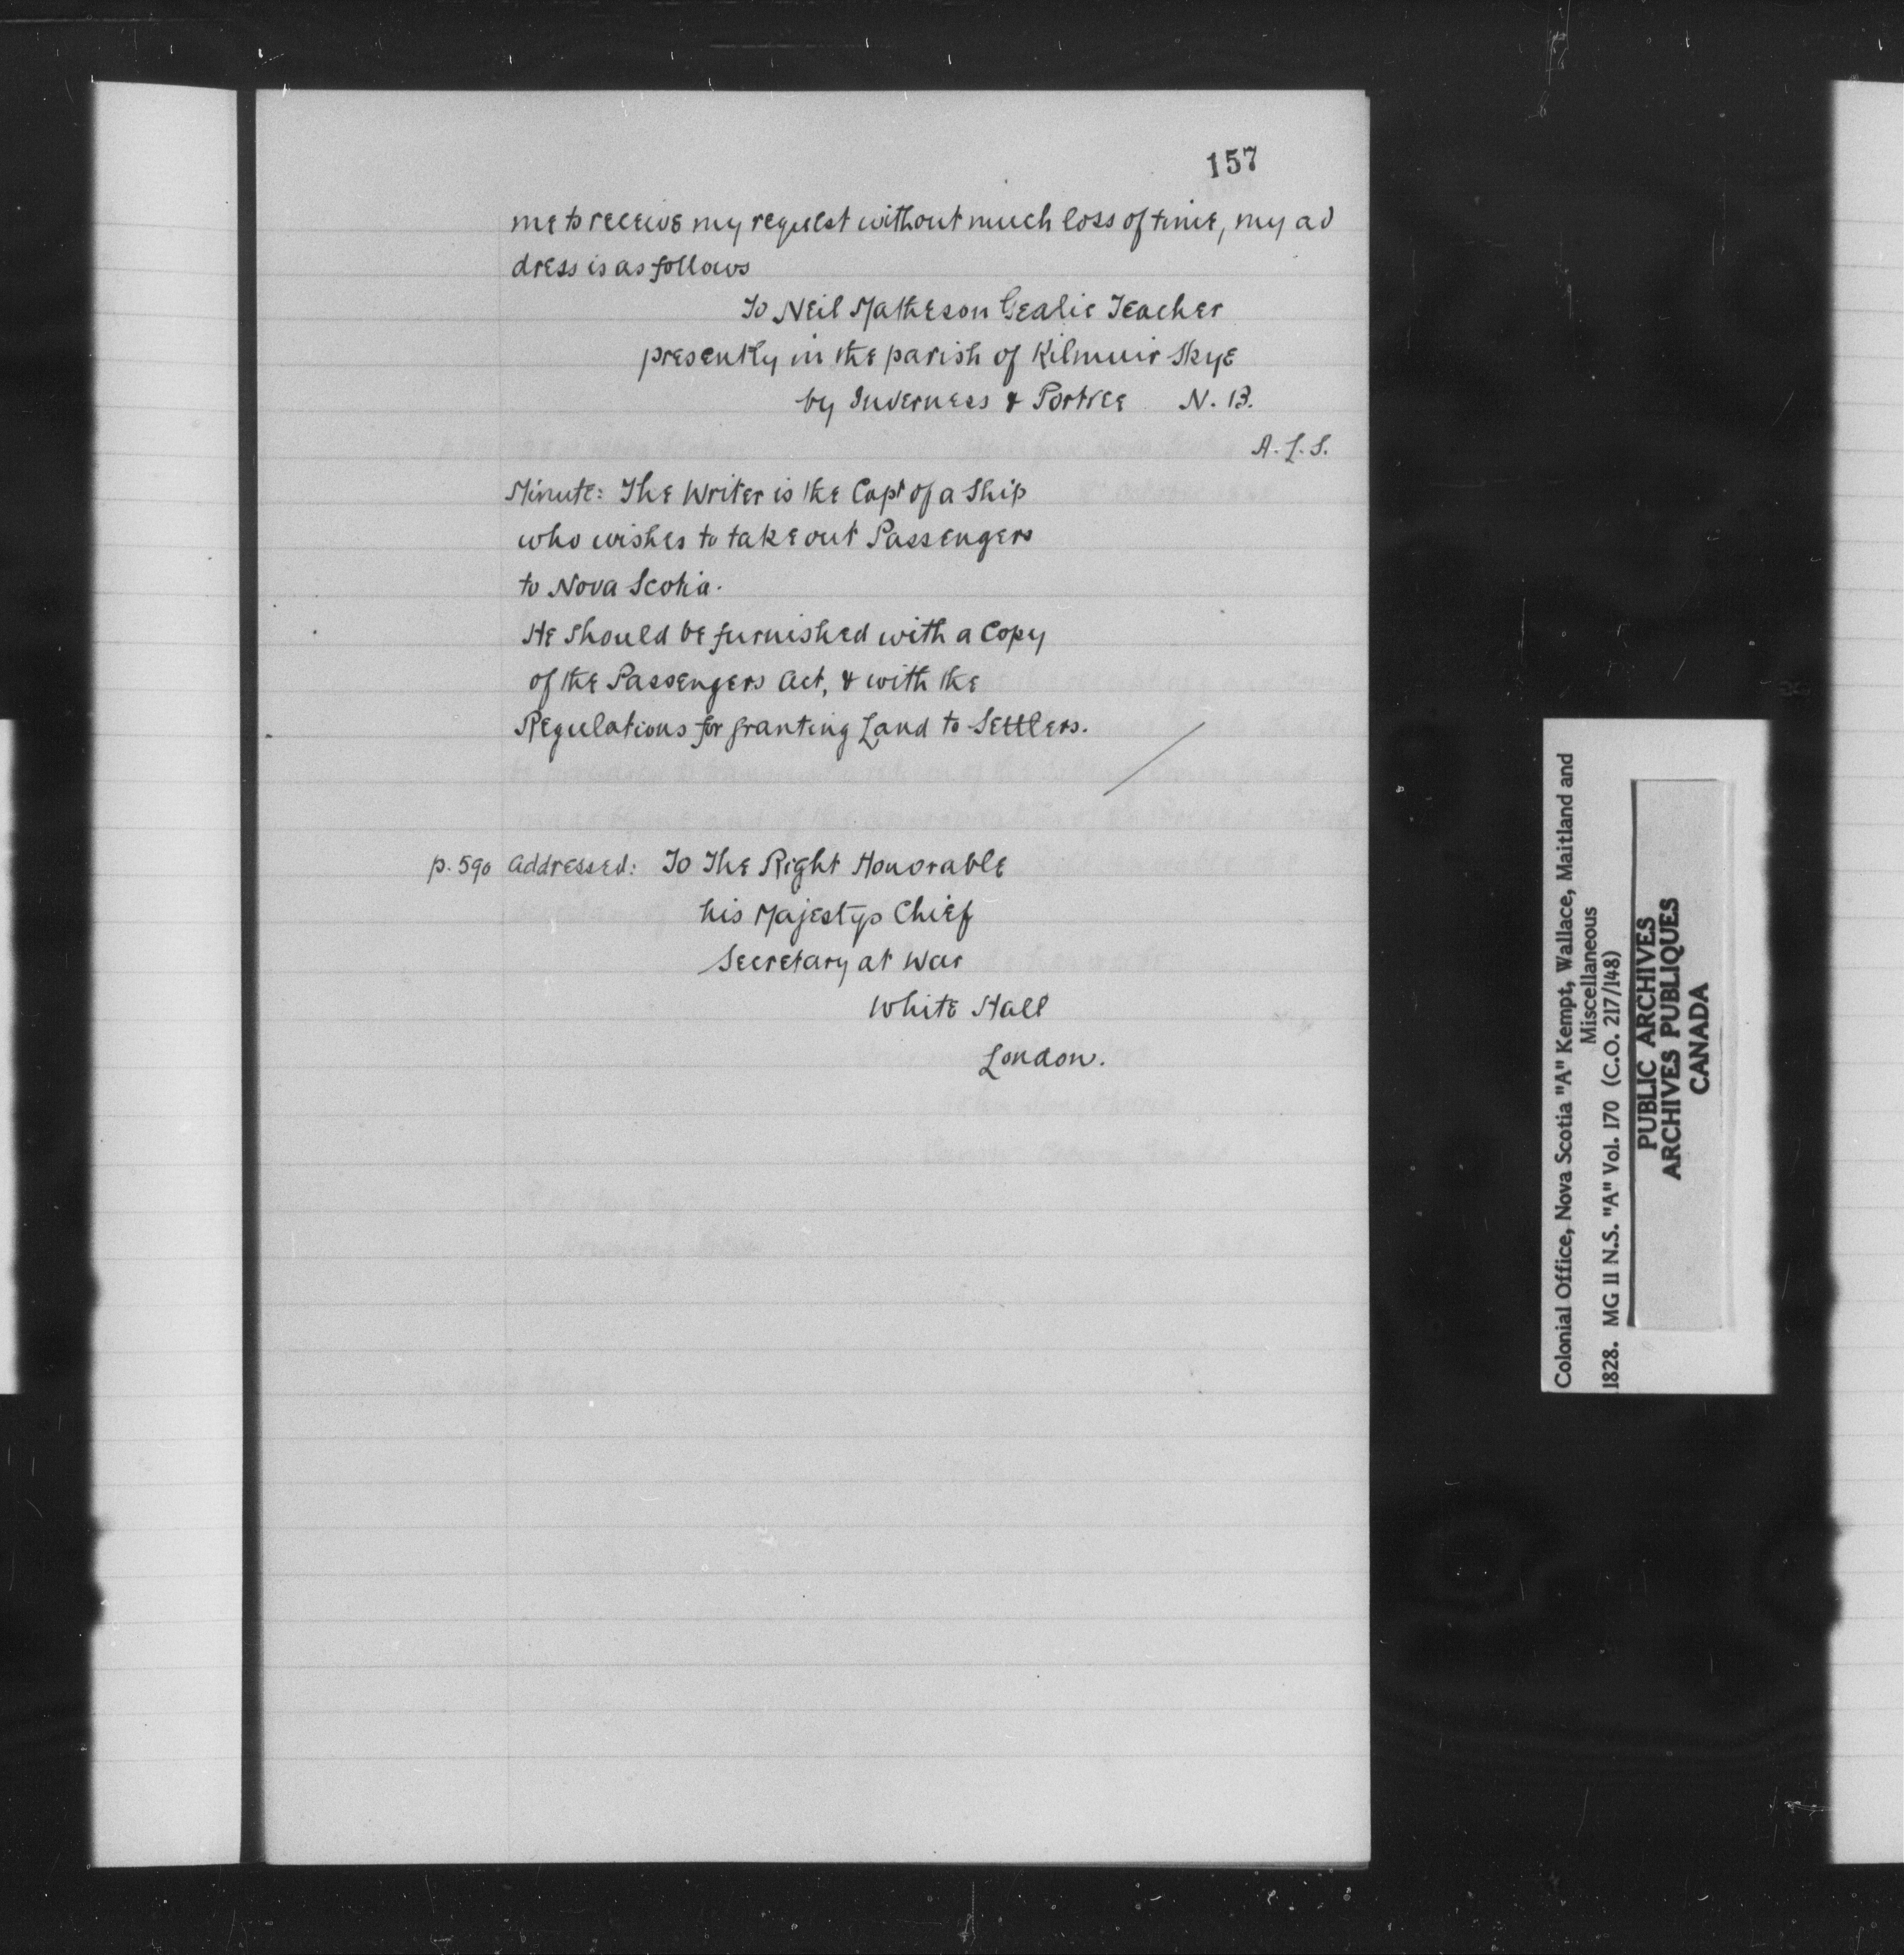 157
me to receive my request without much loss of time, my ad
dress is as follows
To Neil Matheson Gealic Teacher
presently in the parish of Kilmuir Skye
by Inverness & Portree N. B.
A.L.S.
Minute: The Writer is the Capt of a Ship
who wishes to take out Passengers
to Nova Scotia.
He should be furnished with a Copy
of the Passengers Act, & with the
Regulations for granting Land to Settlers.
p. 590 Addressed: To The Right Honorable
his Majestys Chief
Secretary at War
White Hall
London.
Colonial Office, Nova Scotia "A" Kempt, Wallace, Maitland and
Miscellaneous
1828. MG 11 N.S. "A" Vol. 170 (C.O. 217/148)
PUBLIC ARCHIVES
ARCHIVES PUBLIQUES
CANADA